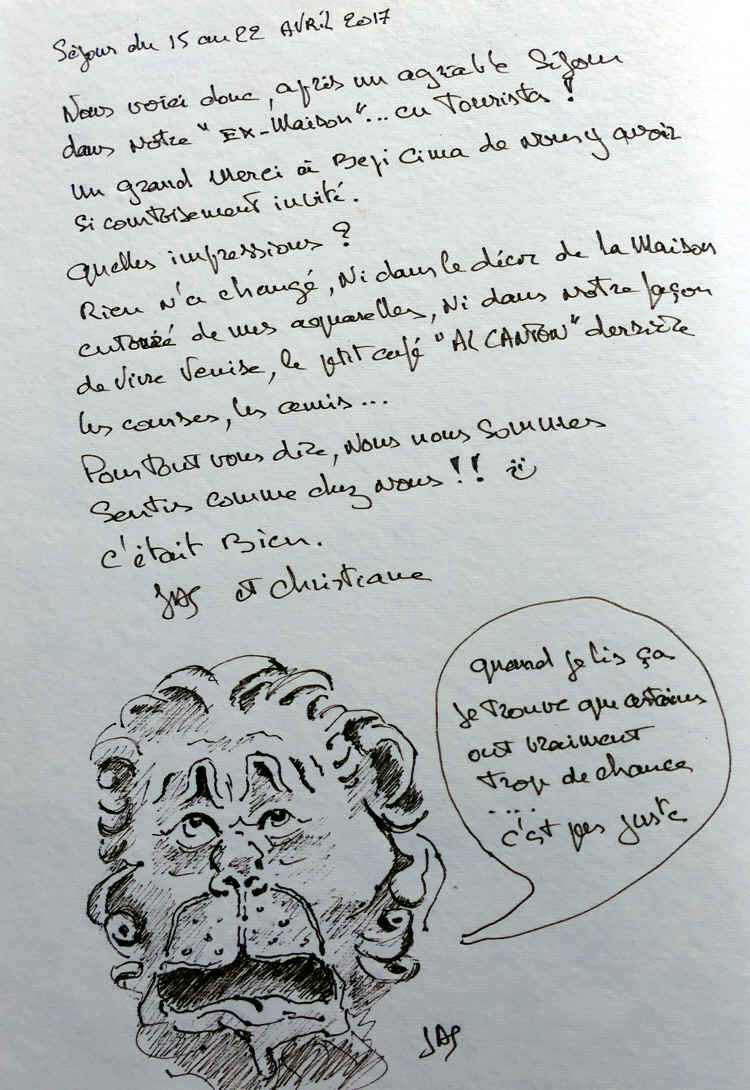 Séjour du 15 au 22 AVRIL 2017
Nous voici donc, après un agréable Séjour
dans Notre "EX-Maison"... en Touristes !
un grand Merci à Bepi Cima de Nous y avoir
Si courtoisement invité.
Quelles impressions ?
Rien n'a changé, Ni dans le décor de la Maison
entouré de mes aquarelles, Ni dans Notre façon
de Vivre Venise, le petit café "AL CANTON" derrière
les courses, les amis...
Pour Tout vous dire, Nous nous Sommes
Sentis comme chez Nous !!
c'était Bien.
JAS et Christiane
quand je lis ça
je trouve que certains
ont vraiment
trop de chance
....
c'est pas juste
JAS